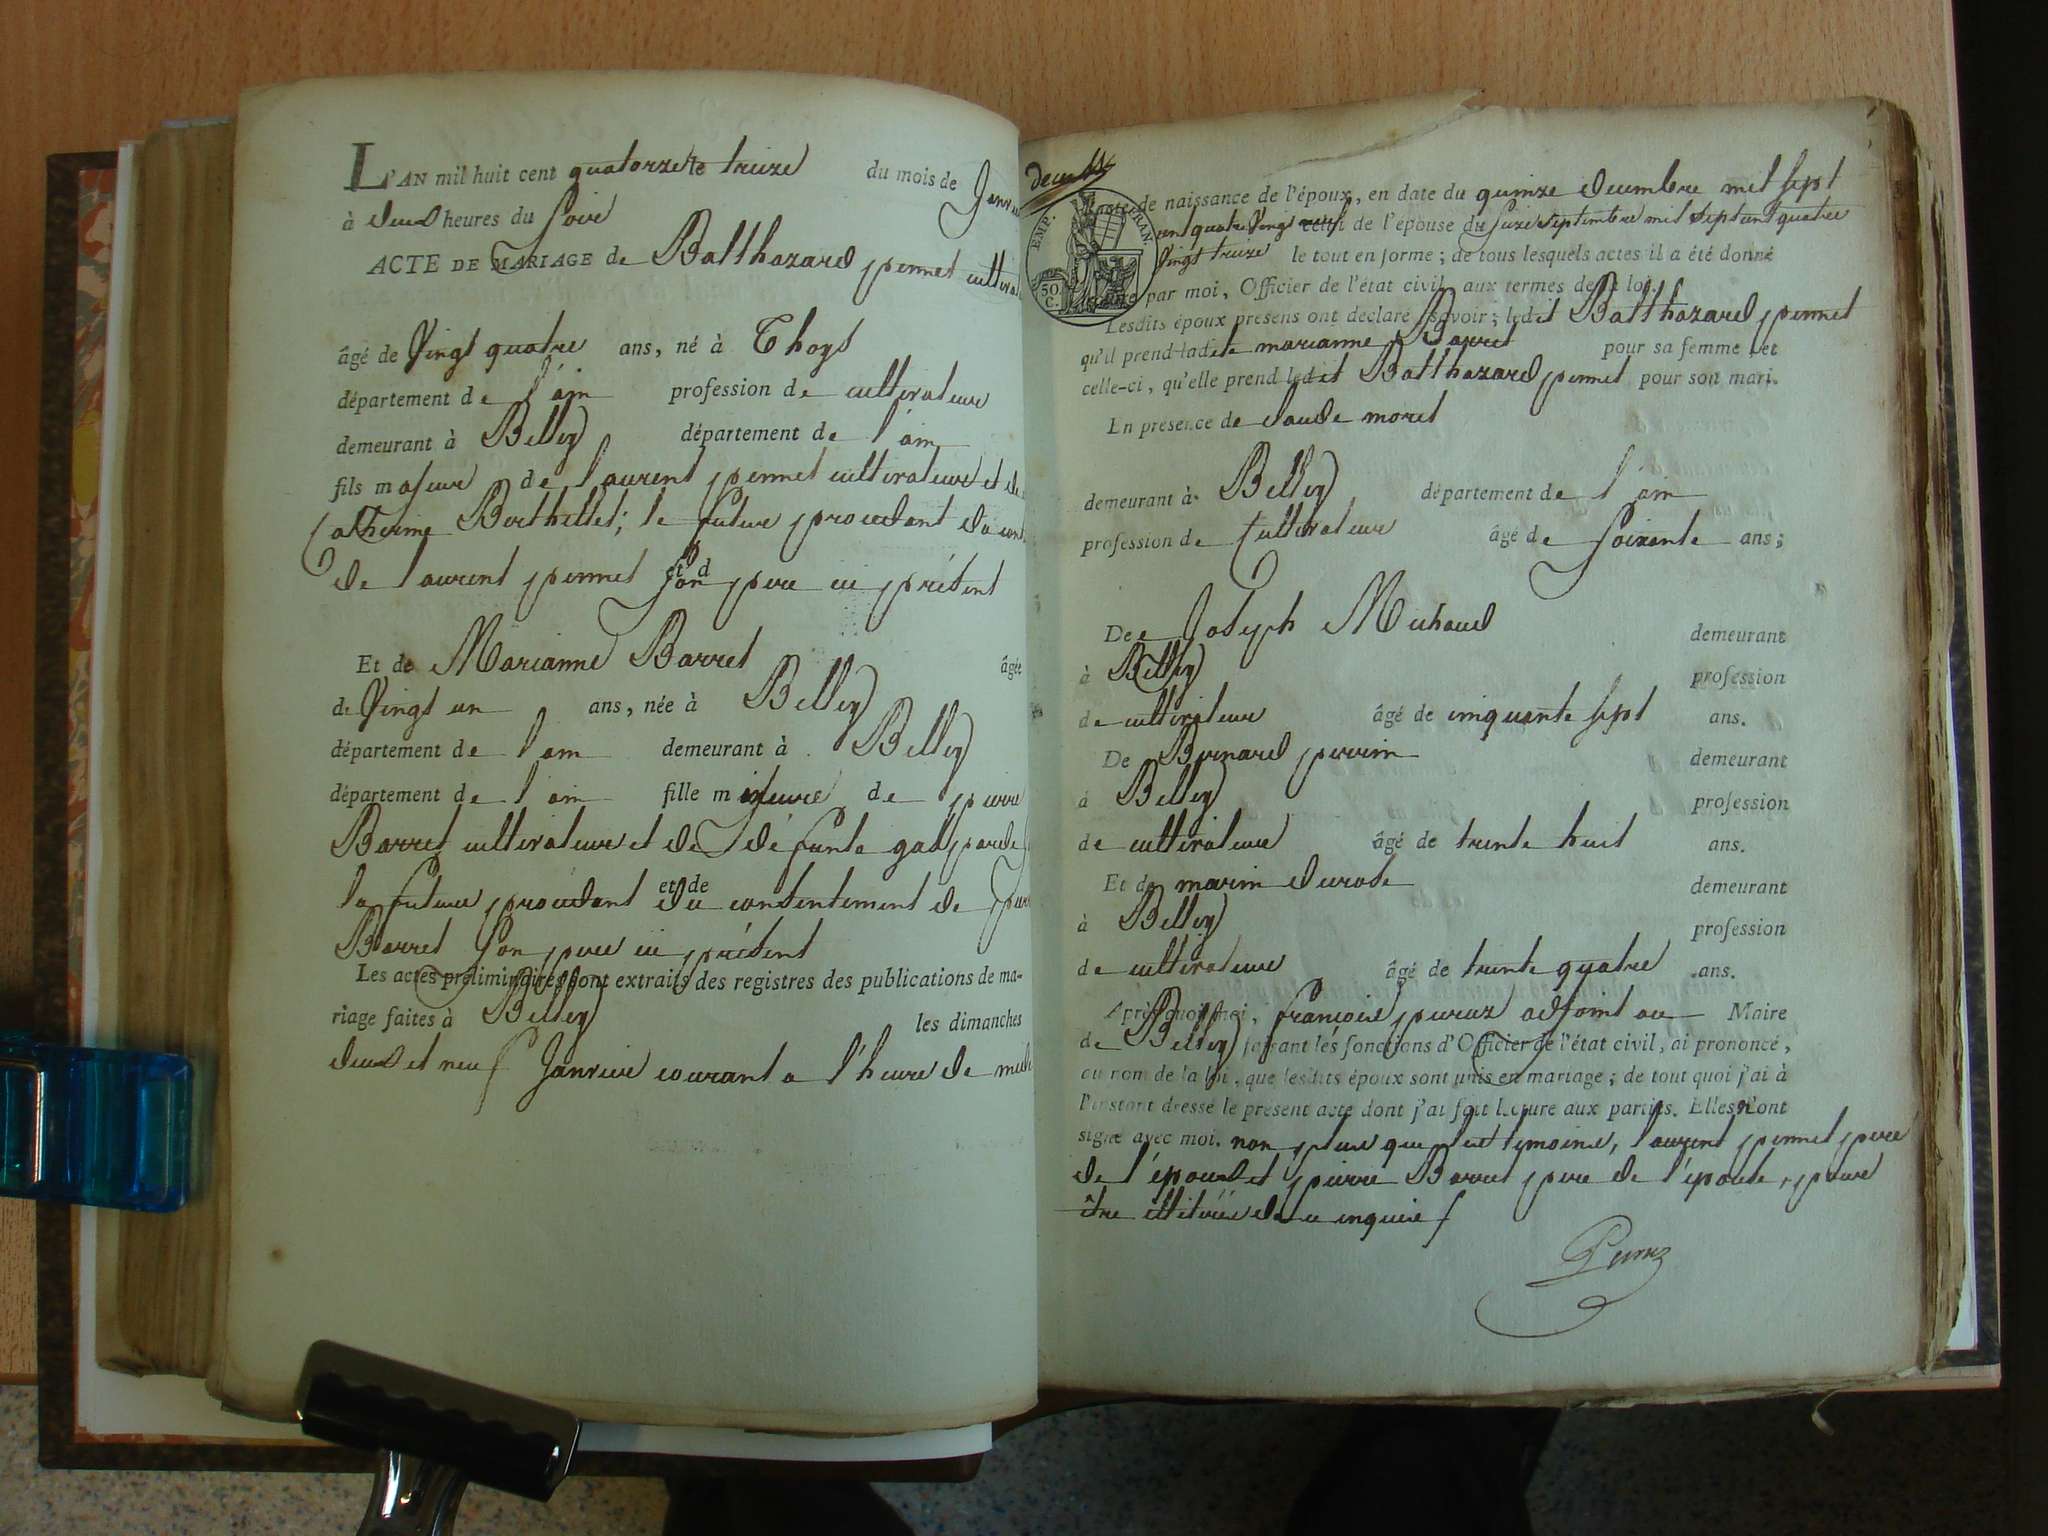 L'AN mil huit cent quatorze le treize du mois de Janvier
à deux heures du soir
ACTE DE MARIAGE de Balthazard pennet
âgé de Vingt quatre ans, né à Thoys
département de l'ain profession de cultivateur
demeurant à Belley département de l'ain
fils majeur de laurent pennet cultivateur et de
Catherine Berthellet; le futur procédant du
de laurent pennet son pere ici présent
Et de Marianne Barret âgée
de Vingt un ans, née à Belley
département de l'ain demeurant à Belley
département de l'ain fille mineure de pierre
Barret cultivateur et de défunte
la future procédant et de du consentement de pierre
Barret son pere ici présent
Les actes préliminaires sont extraits des registres des publications de ma-
riage faites à Belley les dimanches
deux et neuf Janvier courant a l'heure de midi
EMP. FRAN.
50 C.
acte de naissance de l'époux, en date du quinze decembre mil sept
cent quatre Vingt neuf celui de l'épouse du seize septembre mil sept cent quatre
Vingt treize le tout en forme; de tous lesquels actes il a été donné
par moi, Officier de l'état civil, aux termes de la loi.
Lesdits époux présens ont déclaré savoir; ledit Balthazard pennet
qu'il prend ladite marianne Barret pour sa femme et
celle-ci, qu'elle prend ledit Balthazard pennet pour son mari.
En présence de Claude moret
demeurant à Belley département de l'ain
profession de Cultivateur âgé de soixante ans;
De Joseph Michaud demeurant
à Belley profession
de cultivateur âgé de cinquante sept ans.
De Bernard perrin demeurant
à Belley profession
de cultivateur âgé de trente huit ans.
Et de marin demeurant
à Belley profession
de cultivateur âgé de trente quatre ans.
Après quoi, moi, françois peruz adjoint au Maire
de Belley faisant les fonctions d'Officier de l'état civil, ai prononcé,
au nom de la loi, que lesdits époux sont unis en mariage; de tout quoi j'ai à
l'instant dressé le présent acte dont j'ai fait lecture aux parties. Elles n'ont
signé avec moi. non plus que les témoins, laurent pennet pere
de l'époux et pierre Barret pere de l'épouse, pour
être illitérés de ce enquis
Peruz